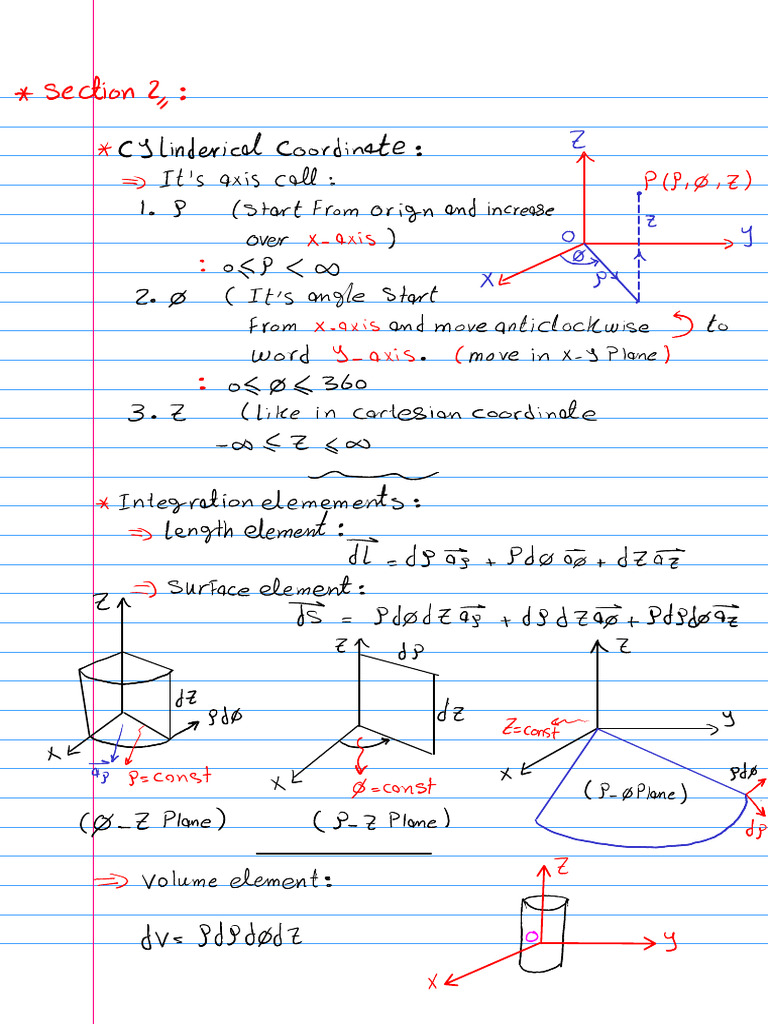 * Section 2 :
* Cylinderical Coordinate :
⇒ It's axis call :
1. ρ (Start From orign and increase
over x_axis)
: 0⩽ρ < ∞
2. φ ( It's angle Start
From x.axis and move anticlockwise to
word y_axis. (move in x-y Plane)
: 0⩽ φ ⩽ 360
3. Z (like in cartesian coordinate
-∞ ⩽ Z ⩽ ∞
Z
P(ρ, φ, Z)
Z
O
y
φ
ρ
X
* Integration elemements :
⇒ Length element :
dl = dρ aρ + ρdφ aφ + dZ aZ
⇒ Surface element :
ds = ρdφdZ aρ + dρ dZ aφ + ρdρdφ aZ
Z
dZ
ρdφ
X
aρ
ρ=const
(φ_Z Plane)
Z
dρ
dZ
X
φ=const
(ρ_Z Plane)
Z
Z=const
y
X
(ρ_φ Plane)
ρdφ
dρ
⇒ Volume element :
dv= ρdρdφdZ
Z
O
y
X